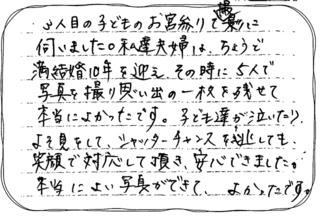 3人目の子どものお宮参りで撮影に
伺いました。私達夫婦は、ちょうど
満結婚10年を迎え、その時に5人で
写真を撮り思い出の一枚を残せて
本当によかったです。子ども達が泣いたり、
よそ見をして、シャッターチャンスを逃しても、
笑顔で対応して頂き、安心できました。
本当によい写真ができて、よかったです。